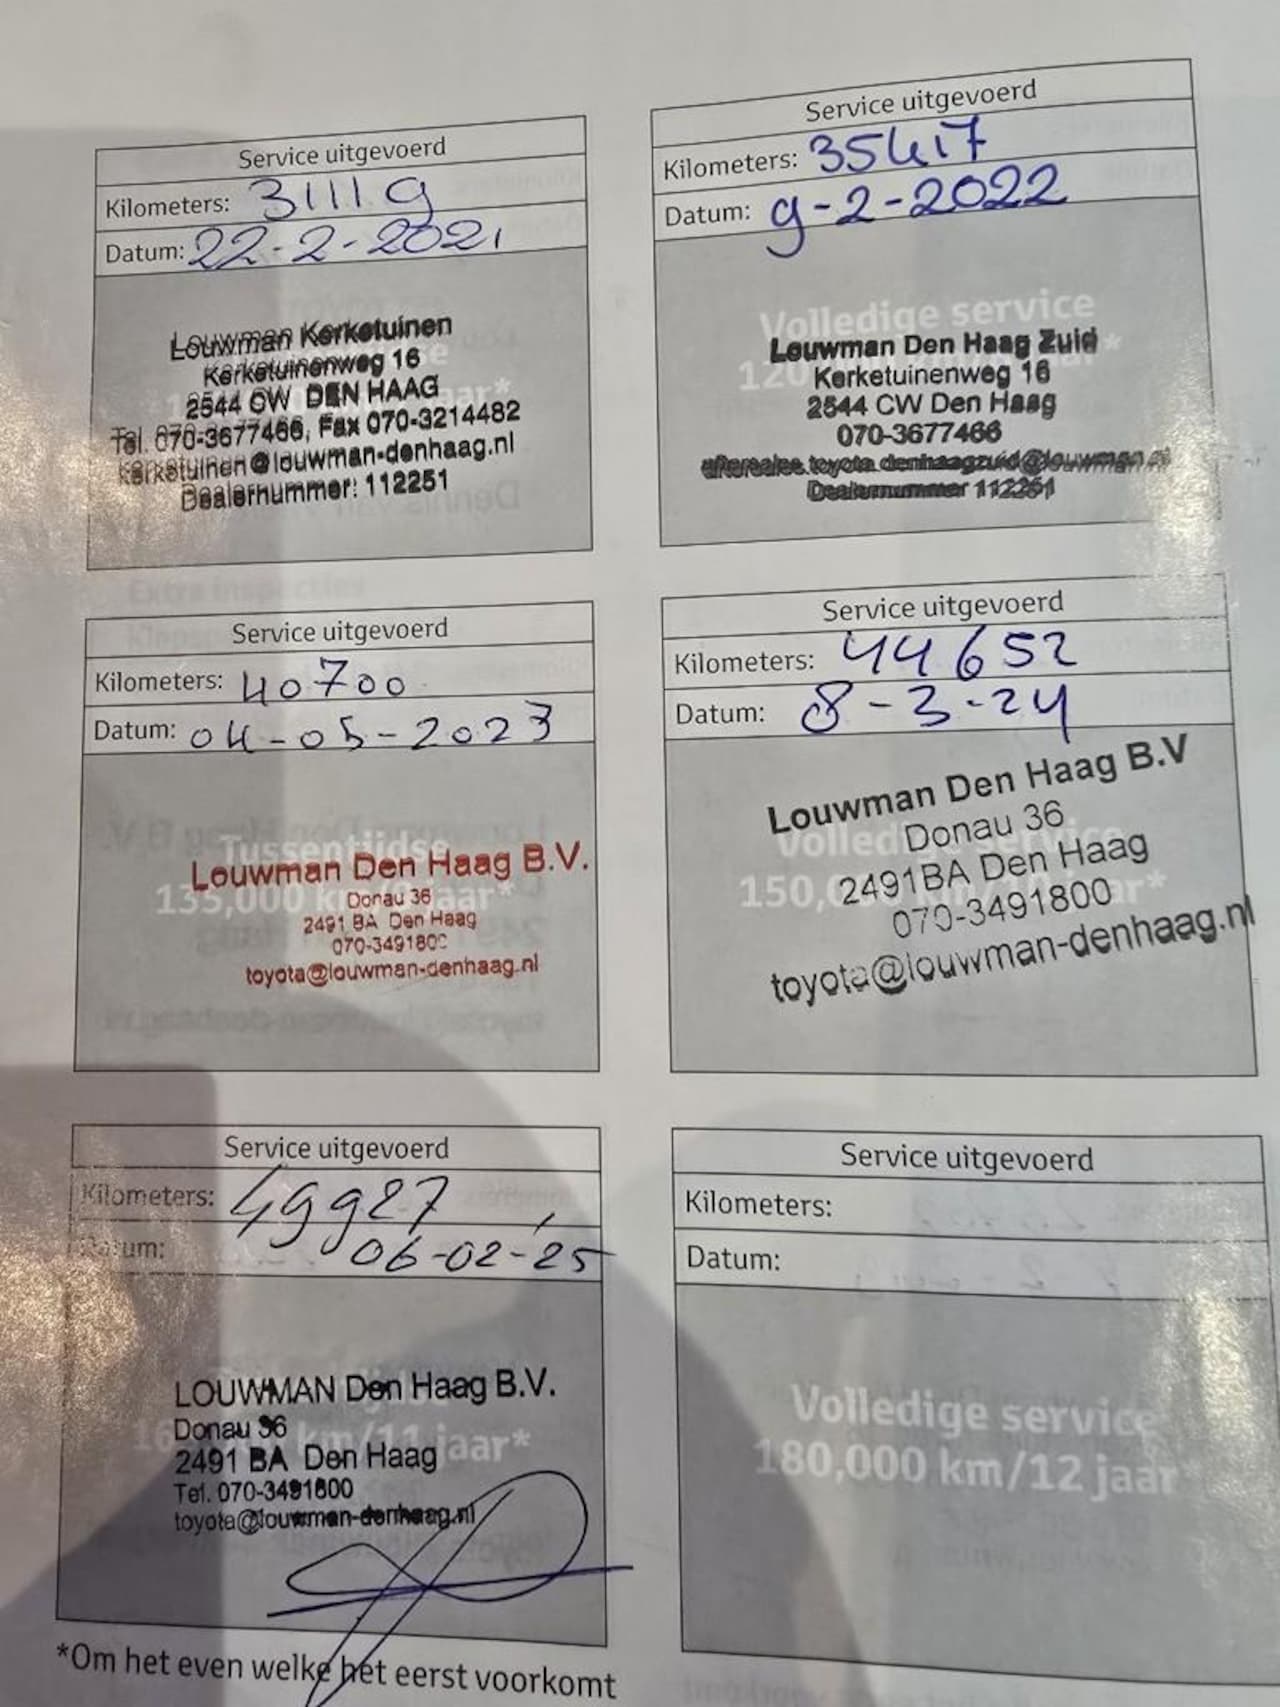 Service uitgevoerd
Kilometers: 31119
Datum: 22-2-2021
Louwman Kerketuinen
Kerketuinenweg 16
2544 CW DEN HAAG
Tel. 070-3677466, Fax 070-3214482
kerketuinen@louwman-denhaag.nl
Dealernummer: 112251
Service uitgevoerd
Kilometers: 35417
Datum: 9-2-2022
Volledige service
Louwman Den Haag Zuid
Kerketuinenweg 16
2544 CW Den Haag
070-3677466
aftersales.toyota.denhaagzuid@louwman.nl
Dealernummer 112251
Service uitgevoerd
Kilometers: 40700
Datum: 04-05-2023
Tussentijdse
Louwman Den Haag B.V.
135,000 km/ jaar*
Donau 36
2491 BA Den Haag
070-3491800
toyota@louwman-denhaag.nl
Service uitgevoerd
Kilometers: 44652
Datum: 8-3-24
Louwman Den Haag B.V
Donau 36
Volledige service
2491BA Den Haag
150,000 km/10 jaar*
070-3491800
toyota@louwman-denhaag.nl
Service uitgevoerd
Kilometers: 49927
Datum: 06-02-'25
LOUWMAN Den Haag B.V.
Donau 36
km/11 jaar*
2491 BA Den Haag
Tel. 070-3491800
toyota@louwman-denhaag.nl
Service uitgevoerd
Kilometers:
Datum:
Volledige service
180,000 km/12 jaar*
*Om het even welke het eerst voorkomt